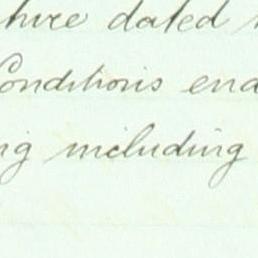 hire dated
Conditions end
ng including